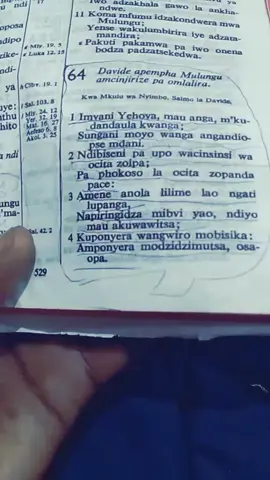 iwo adzakbala gawo la ankha-
ndwe.
11 Koma mfumu idzakondwera mwa
Mulungu;
Yense wakulumbirira iye adzata-
mandira;
e Pakuti pakamwa pa iwo onena
bodza padzatsekedwa.
64
Davide apempha Mulungu
amcinjirize pa omlalira.
Kwa Mkulu wa Nyimbo. Salmo la Davide.
1 Imvani Yehova, mau anga, m'ku-
dandaula kwanga;
Sungani moyo wanga angandio-
pse mdani.
2 Ndibiseni pa upo wacinsinsi wa
ocita zoipa;
Pa phokoso la ocita zopanda
pace:
3 Amene anola lilime lao ngati
lupanga,
Napiringidza mibvi yao, ndiyo
mau akuwawitsa;
4 Kuponyera wangwiro mobisika:
Amponyera modzidzimutsa, osa-
opa.
d Miy. 19. 5
e Luka 12. 15
Sal. 103. 8
Mat. 16. 27
Aefeso 6. 8
Sal. 42. 2
529